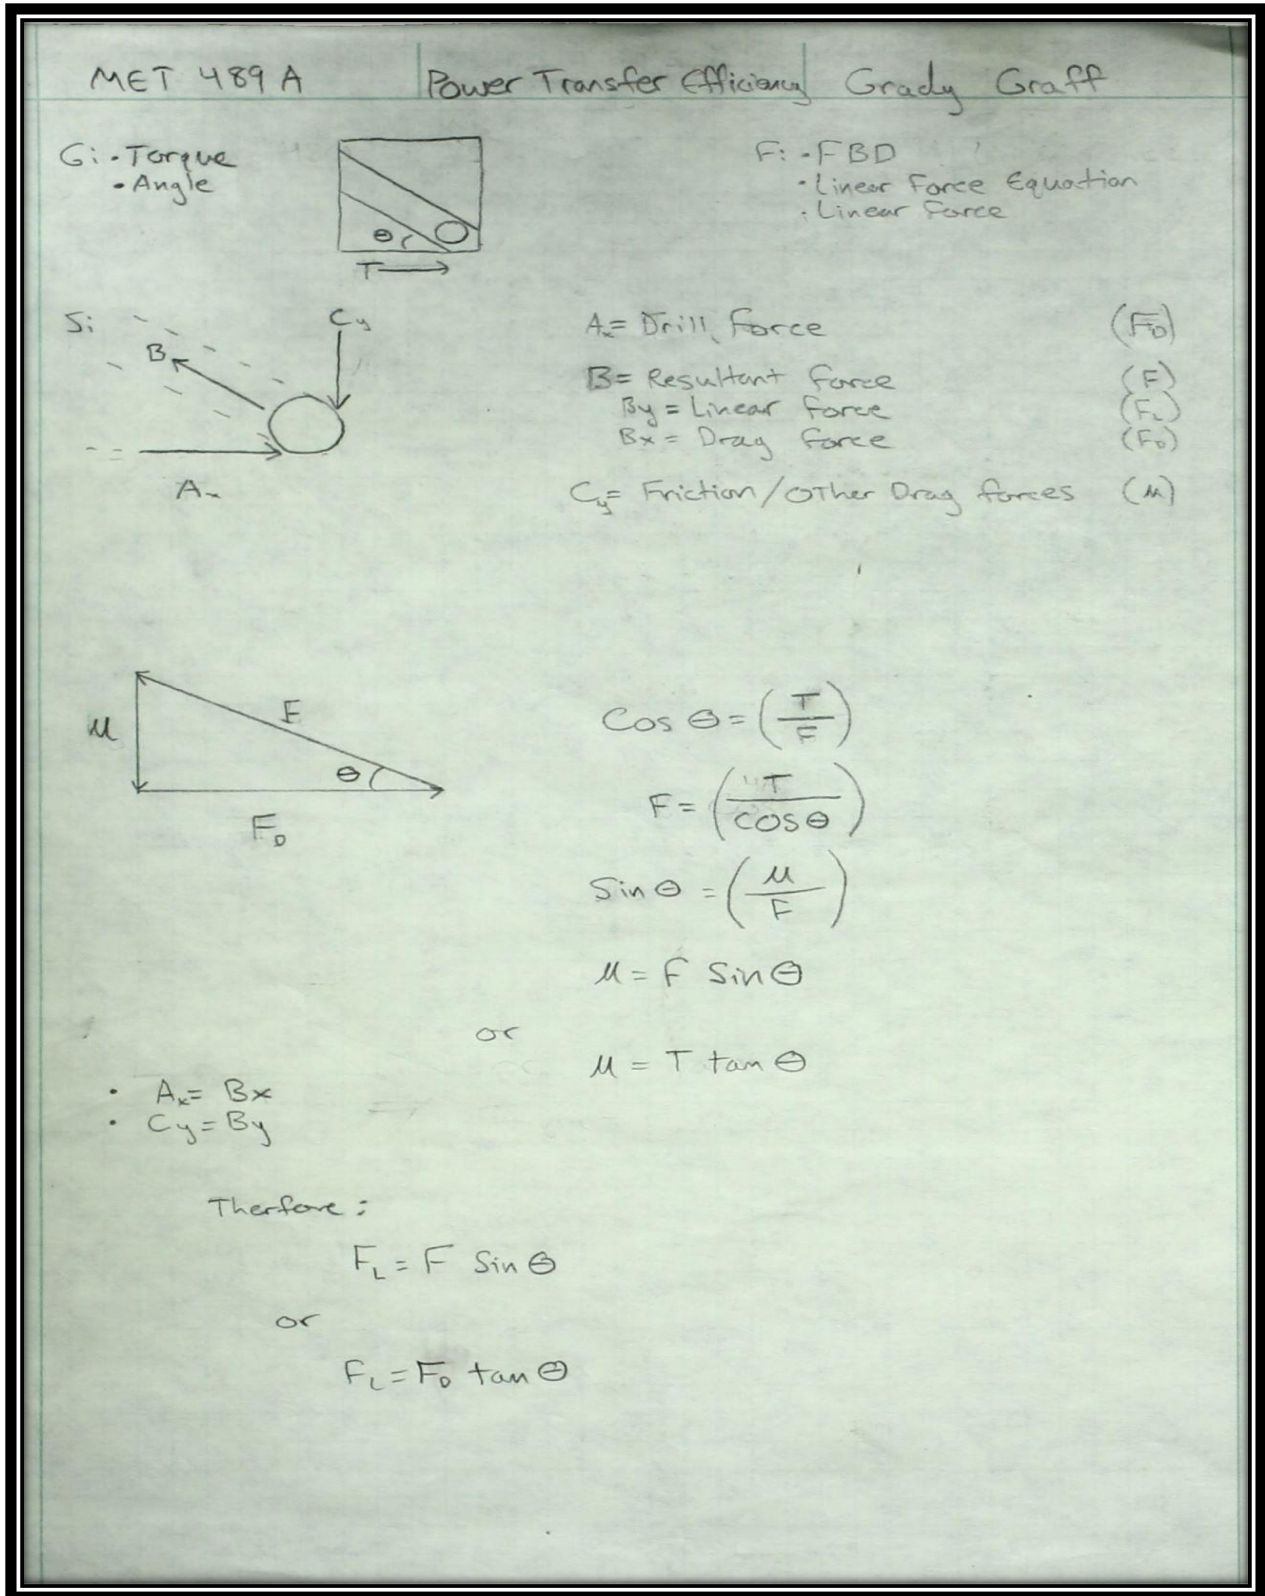 MET 489 A Power Transfer Efficiency Grady Graff
G: • Torque
• Angle
θ
T
F: • FBD
• Linear Force Equation
• Linear Force
S:
B
Cy
Ax
Ax= Drill Force (FD)
B= Resultant force (F)
By = Linear force (FL)
Bx = Drag force (FD)
Cy= Friction/OTher Drag forces (μ)
μ
F
θ
FD
Cos θ = (T/F)
F = (T/cosθ)
Sin θ = (μ/F)
μ = F Sin θ
or
μ = T tan θ
• Ax= Bx
• Cy= By
Therfore:
FL = F Sin θ
or
FL = FD tan θ